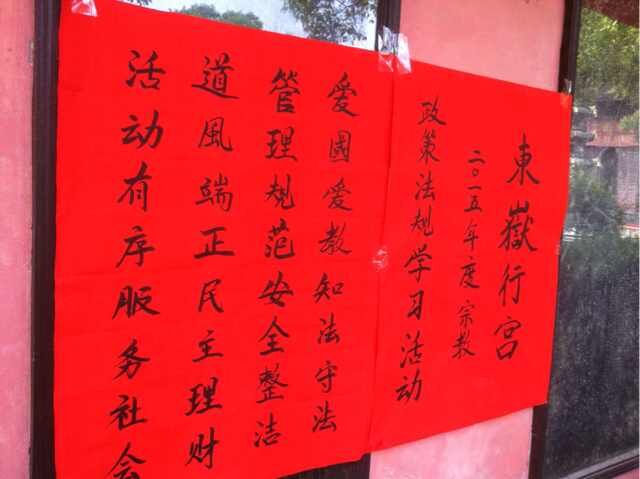 東嶽行宮
二〇一五年度宗教
政策法规学习活动
爱國爱教知法守法
管理规范安全整洁
道風端正民主理财
活动有序服务社会